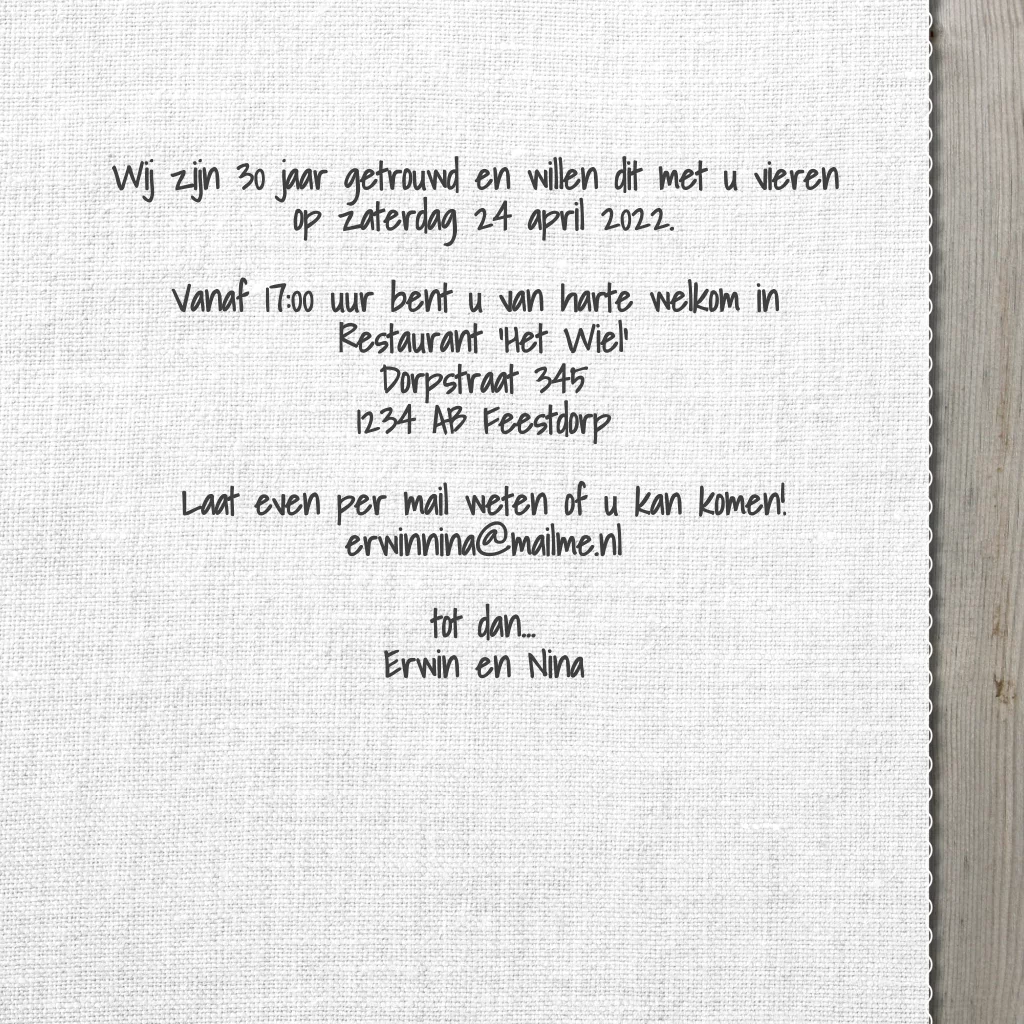 Wij zijn 30 jaar getrouwd en willen dit met u vieren
op zaterdag 24 april 2022.
Vanaf 17:00 uur bent u van harte welkom in
Restaurant 'Het Wiel'
Dorpstraat 345
1234 AB Feestdorp
Laat even per mail weten of u kan komen!
erwinnina@mailme.nl
tot dan...
Erwin en Nina